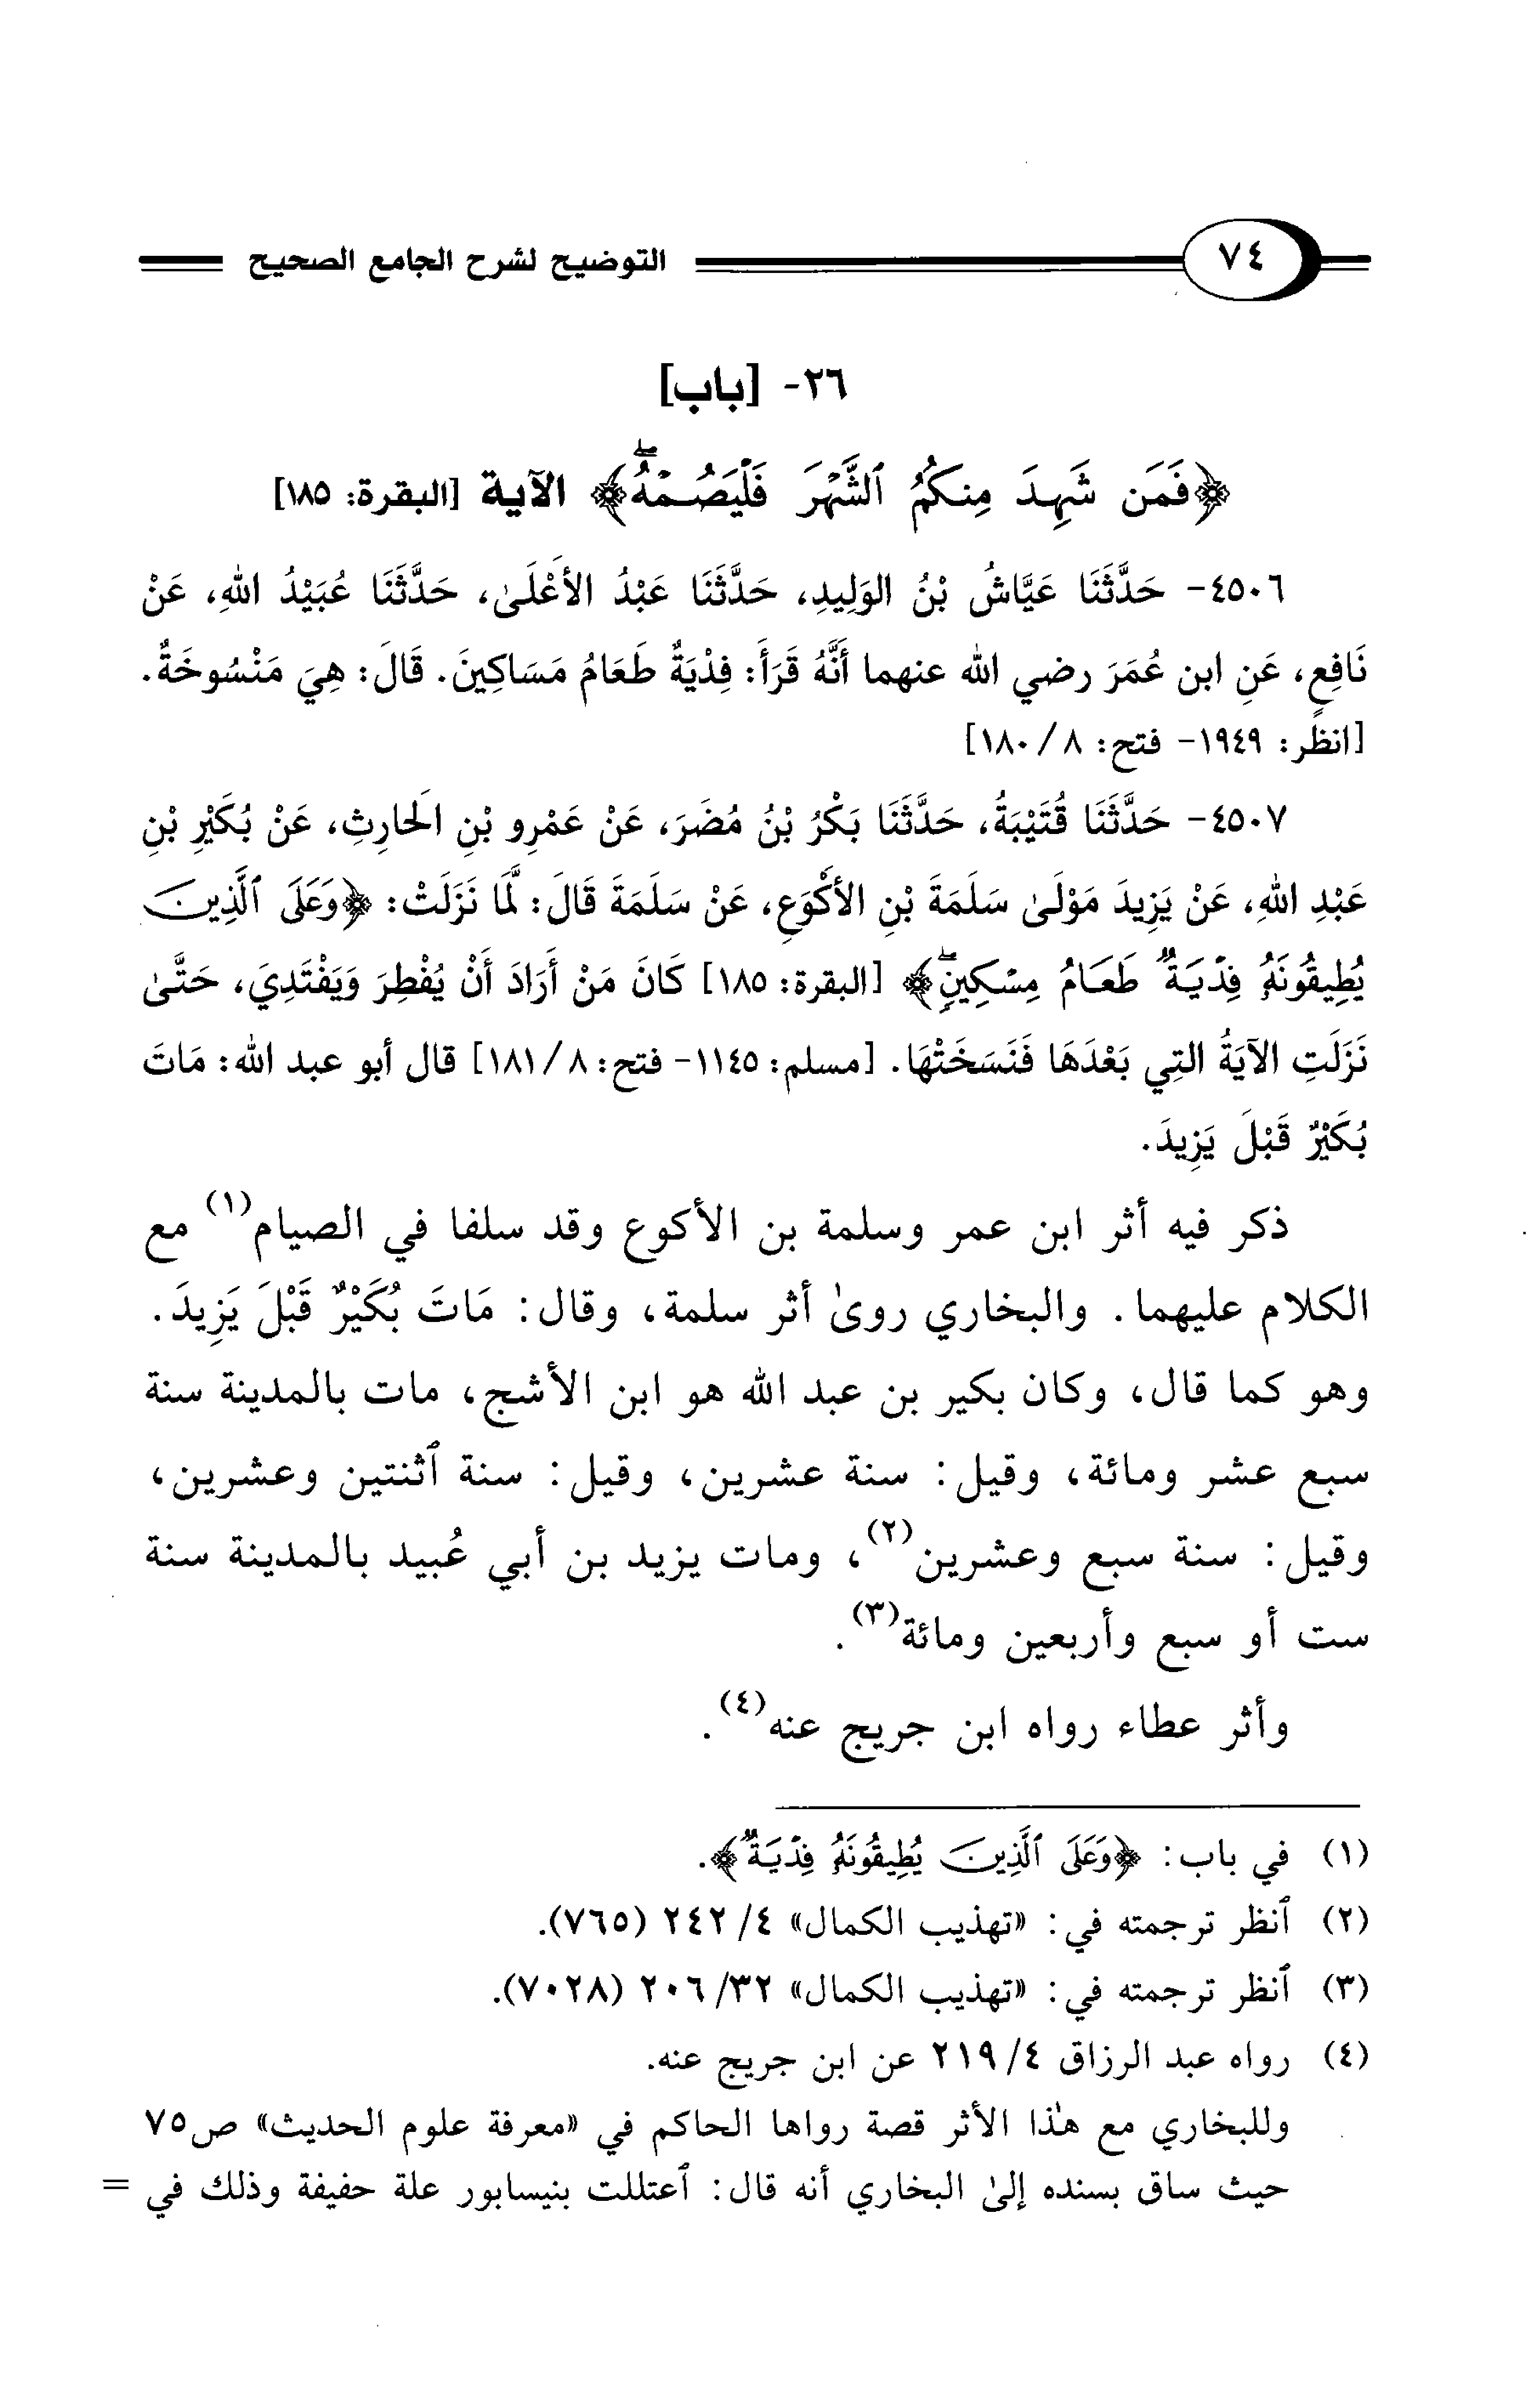 ٧٤ التوضيح لشرح الجامع الصحيح
٢٦- [باب]
﴿فَمَن شَهِدَ مِنكُمُ ٱلشَّهْرَ فَلْيَصُمْهُ﴾ الآية [البقرة: ١٨٥]
٤٥٠٦- حَدَّثَنَا عَيَّاشُ بْنُ الوَلِيدِ، حَدَّثَنَا عَبْدُ الأَعْلَىٰ، حَدَّثَنَا عُبَيْدُ اللهِ، عَنْ
نَافِعٍ، عَنِ ابن عُمَرَ رضي الله عنهما أَنَّهُ قَرَأَ: فِدْيَةٌ طَعَامُ مَسَاكِينَ. قَالَ: هِيَ مَنْسُوخَةٌ.
[انظر: ١٩٤٩- فتح: ٨/ ١٨٠]
٤٥٠٧- حَدَّثَنَا قُتَيْبَةُ، حَدَّثَنَا بَكْرُ بْنُ مُضَرَ، عَنْ عَمْرِو بْنِ الَحارِثِ، عَنْ بُكَيْرِ بْنِ
عَبْدِ اللهِ، عَنْ يَزِيدَ مَوْلَىٰ سَلَمَةَ بْنِ الأَكْوَعِ، عَنْ سَلَمَةَ قَالَ: لَمَّا نَزَلَتْ: ﴿وَعَلَى ٱلَّذِينَ
يُطِيقُونَهُۥ فِدْيَةٌ طَعَامُ مِسْكِينٍ﴾ [البقرة: ١٨٥] كَانَ مَنْ أَرَادَ أَنْ يُفْطِرَ وَيَفْتَدِيَ، حَتَّىٰ
نَزَلَتِ الآيَةُ التِي بَعْدَهَا فَنَسَخَتْهَا. [مسلم: ١١٤٥- فتح: ٨/ ١٨١] قال أبو عبد الله: مَاتَ
بُكَيْرٌ قَبْلَ يَزِيدَ.
ذكر فيه أثر ابن عمر وسلمة بن الأكوع وقد سلفا في الصيام(١) مع
الكلام عليهما. والبخاري روىٰ أثر سلمة، وقال: مَاتَ بُكَيْرٌ قَبْلَ يَزِيدَ.
وهو كما قال، وكان بكير بن عبد الله هو ابن الأشج، مات بالمدينة سنة
سبع عشر ومائة، وقيل: سنة عشرين، وقيل: سنة ٱثنتين وعشرين،
وقيل: سنة سبع وعشرين(٢)، ومات يزيد بن أبي عُبيد بالمدينة سنة
ست أو سبع وأربعين ومائة(٣).
وأثر عطاء رواه ابن جريج عنه(٤).
(١) في باب: ﴿وَعَلَى ٱلَّذِينَ يُطِيقُونَهُۥ فِدْيَةٌ﴾.
(٢) ٱنظر ترجمته في: «تهذيب الكمال» ٤/ ٢٤٢ (٧٦٥).
(٣) ٱنظر ترجمته في: «تهذيب الكمال» ٣٢/ ٢٠٦ (٧٠٢٨).
(٤) رواه عبد الرزاق ٤/ ٢١٩ عن ابن جريج عنه.
وللبخاري مع هٰذا الأثر قصة رواها الحاكم في «معرفة علوم الحديث» ص٧٥
حيث ساق بسنده إلىٰ البخاري أنه قال: ٱعتللت بنيسابور علة حفيفة وذلك في =